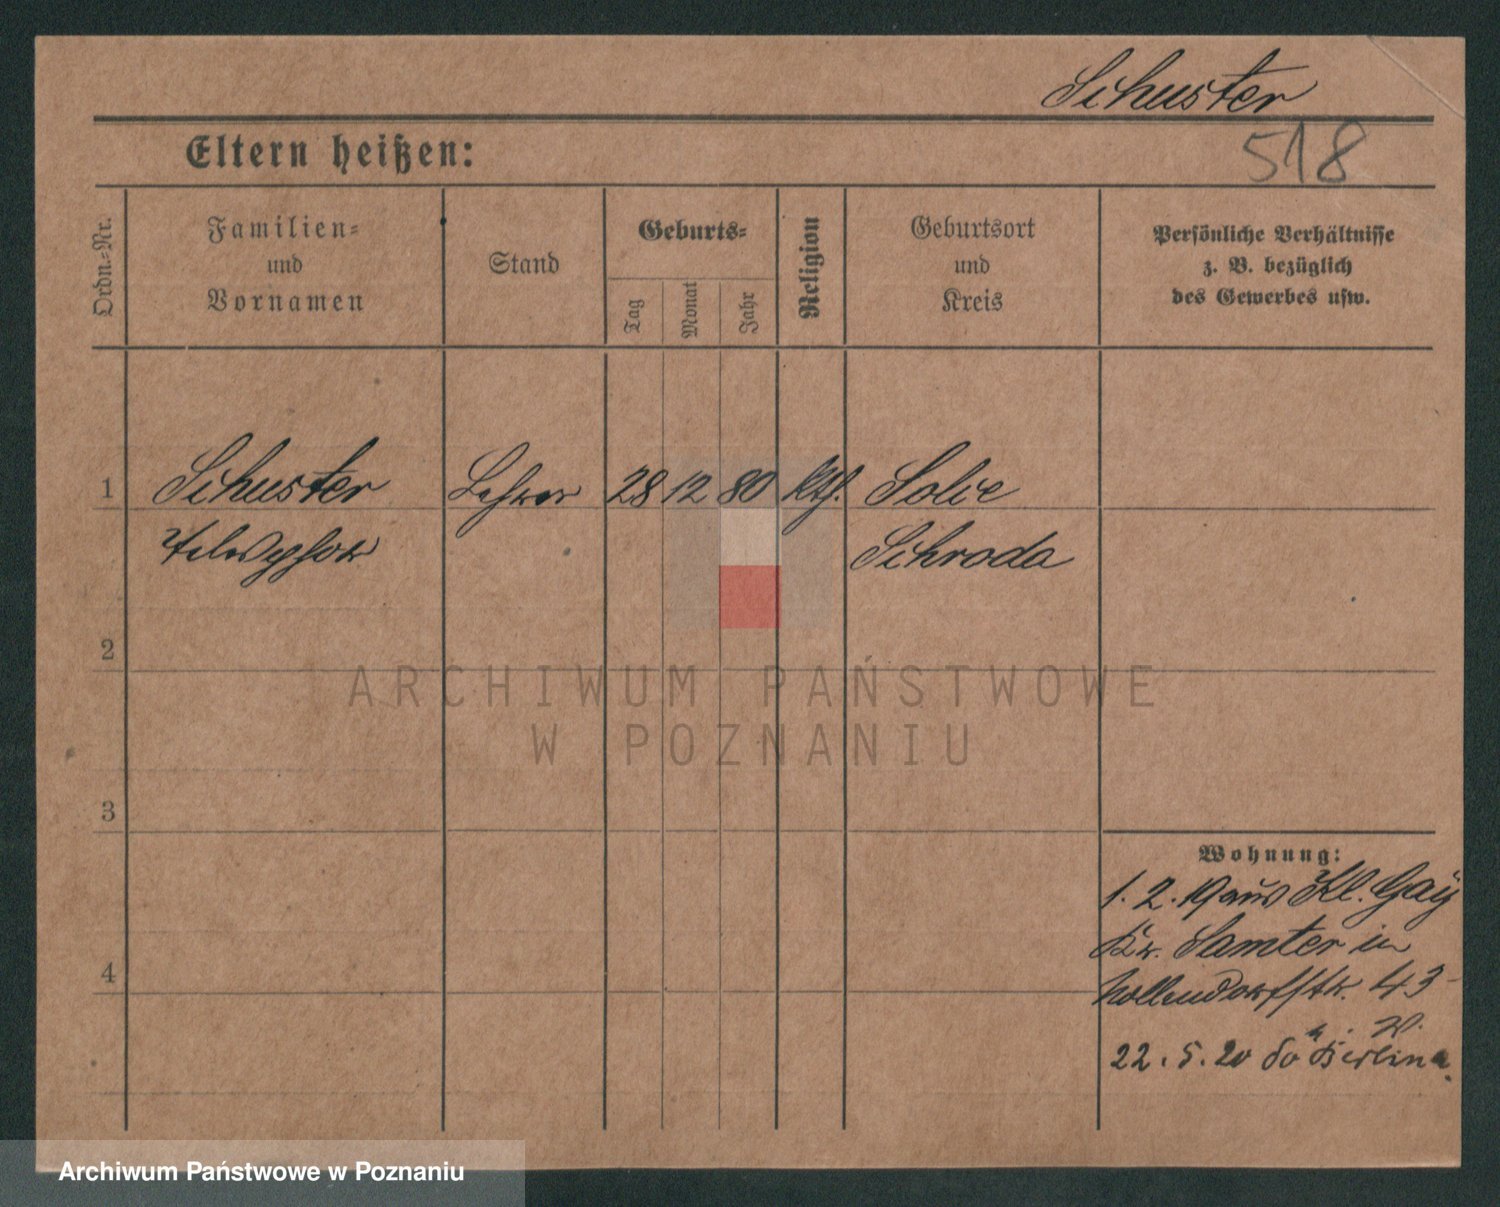 Schuster
518
Eltern heißen:
Ordn.-Nr.
Familien-
und
Vornamen
Stand
Geburts-
Tag
Monat
Jahr
Religion
Geburtsort
und
Kreis
Persönliche Verhältnisse
z. B. bezüglich
des Gewerbes usw.
1 Schuster Lehrer 28 12 80 kth. Solec
Schroda
2
3
4
ARCHIWUM PAŃSTWOWE
W POZNANIU
Wohnung:
1. 2. 19 aus Kl. Gay
Kr. Samter in
Hollendorfstr. 43
22. 5. 20 Berlin
Archiwum Państwowe w Poznaniu